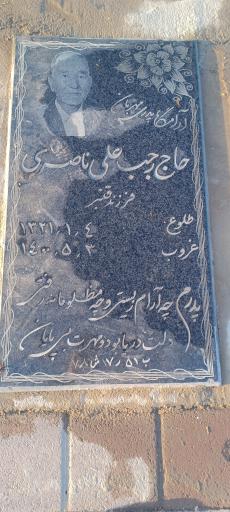 آرامگاه پدری مهربان
حاج رجب علی ناصری
فرزند قنبر
طلوع ۱۳۲۱.۱.۴
غروب ۱۴۰۰.۵.۳
پدرم چه آرام زیستی و چه مظلومانه رفتی
دلت دریا بود و مهرت بی پایان